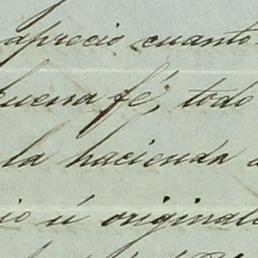 aprecio cuanto
buena fé, todo
la hacienda
io ú original